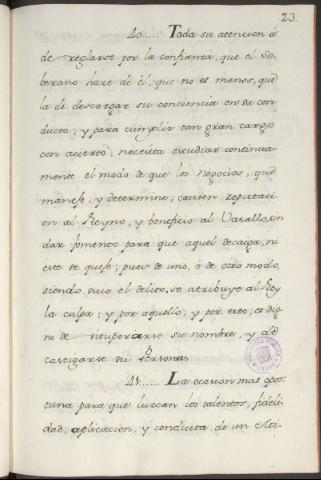 23.
40..... Toda su atencion á
de reglarse por la confianza, que el So-
berano haze de él, que no es menos, que
la de descargar su conciencia en su con-
ducta; y para cumplir tan gran cargo
con acierto, necesita estudiar continua-
mente el modo de que los negocios, que
maneje, y determine, causen reputaci-
on al Reyno, y beneficio al Vasallo, sin
dar fomento para que aquel decaiga, ni
este se queje; pues de uno, ò de otro modo,
siendo suio el delito, se atribuye al Rey
la culpa; y por aquello, y por esto, es dig-
no de vituperarse su nombre, y de
castigarse su Persona.
41..... La ocasion mas opor-
tuna para que luzcan los talentos, fideli-
dad, aplicacion, y conducta de un Mi-